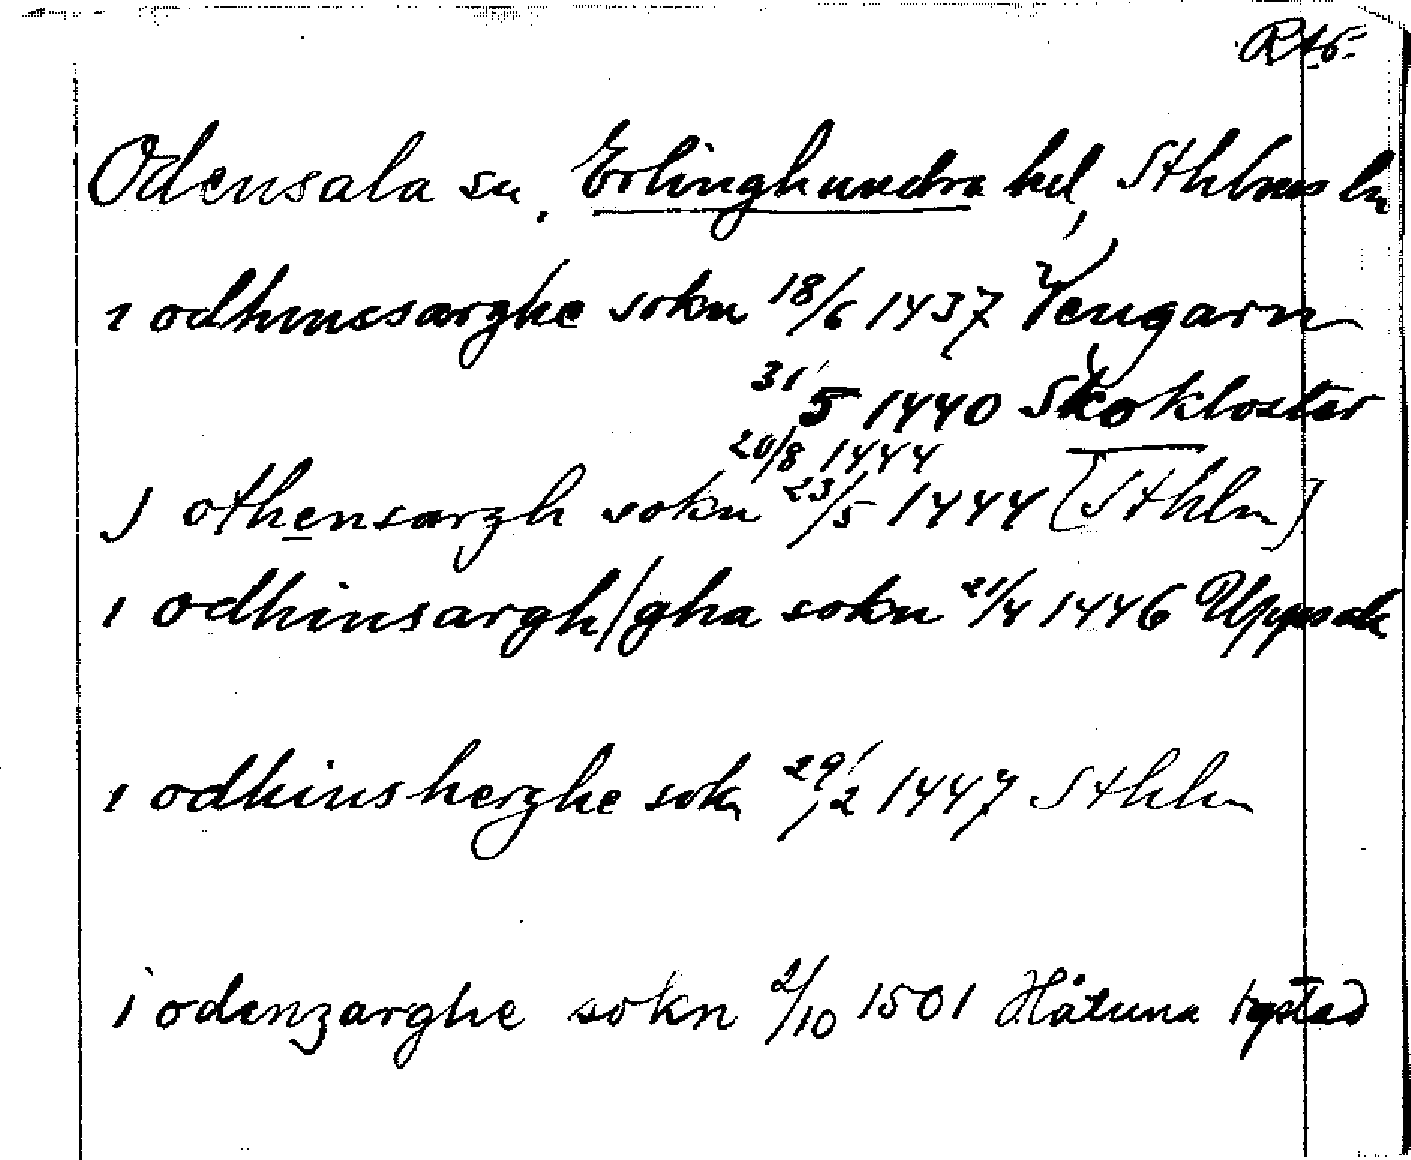 Odensala sn, Erlinghundra hd, Sthlms ln
ı odhinssarghe sokn 18/6 1437 Vengarn
31/5 1440 Skokloster
20/8 1444
J othensargh sokn 23/5 1444 (Sthlm)
ı odhinsargh/gha sokn 21/4 1446 Uppsala
ı odhinsherghe sokn 29/2 1447 Sthlm
i odenzarghe sokn 2/10 1501 Håtuna tgstad